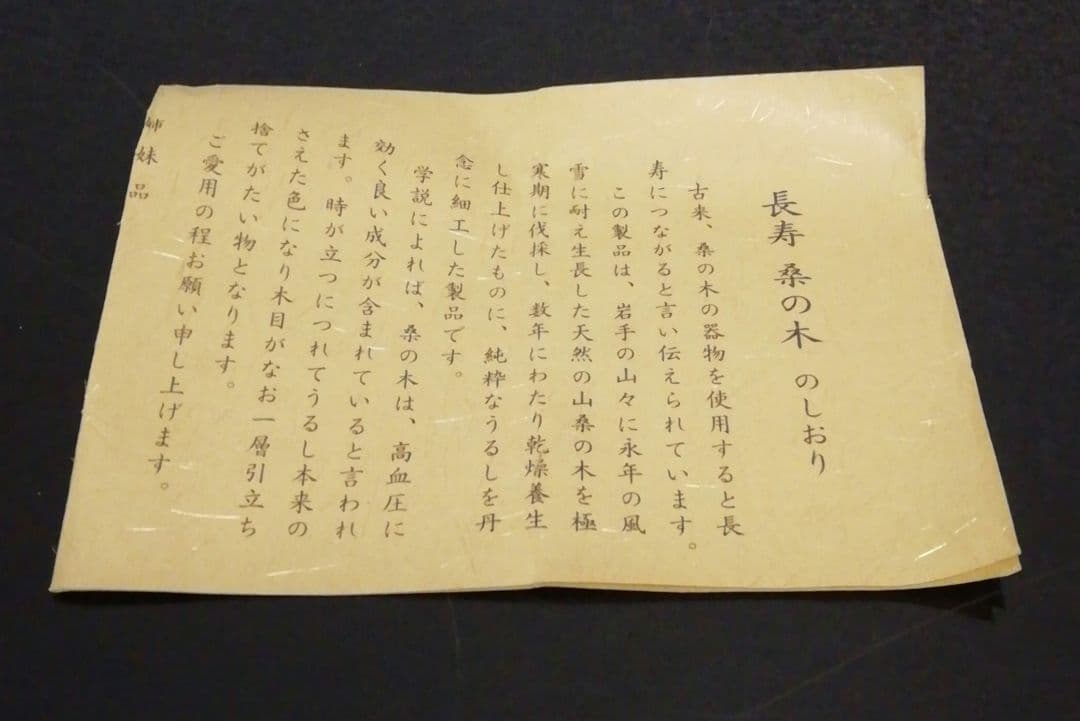 長寿 桑の木 のしおり
古来、桑の木の器物を使用すると長
寿につながると言い伝えられています。
この製品は、岩手の山々に永年の風
雪に耐え生長した天然の山桑の木を極
寒期に伐採し、数年にわたり乾燥養生
し仕上げたものに、純粋なうるしを丹
念に細工した製品です。
学説によれば、桑の木は、高血圧に
効く良い成分が含まれていると言われ
ます。時が立つにつれてうるし本来の
さえた色になり木目がなお一層引立ち
捨てがたい物となります。
ご愛用の程お願い申し上げます。
姉妹品